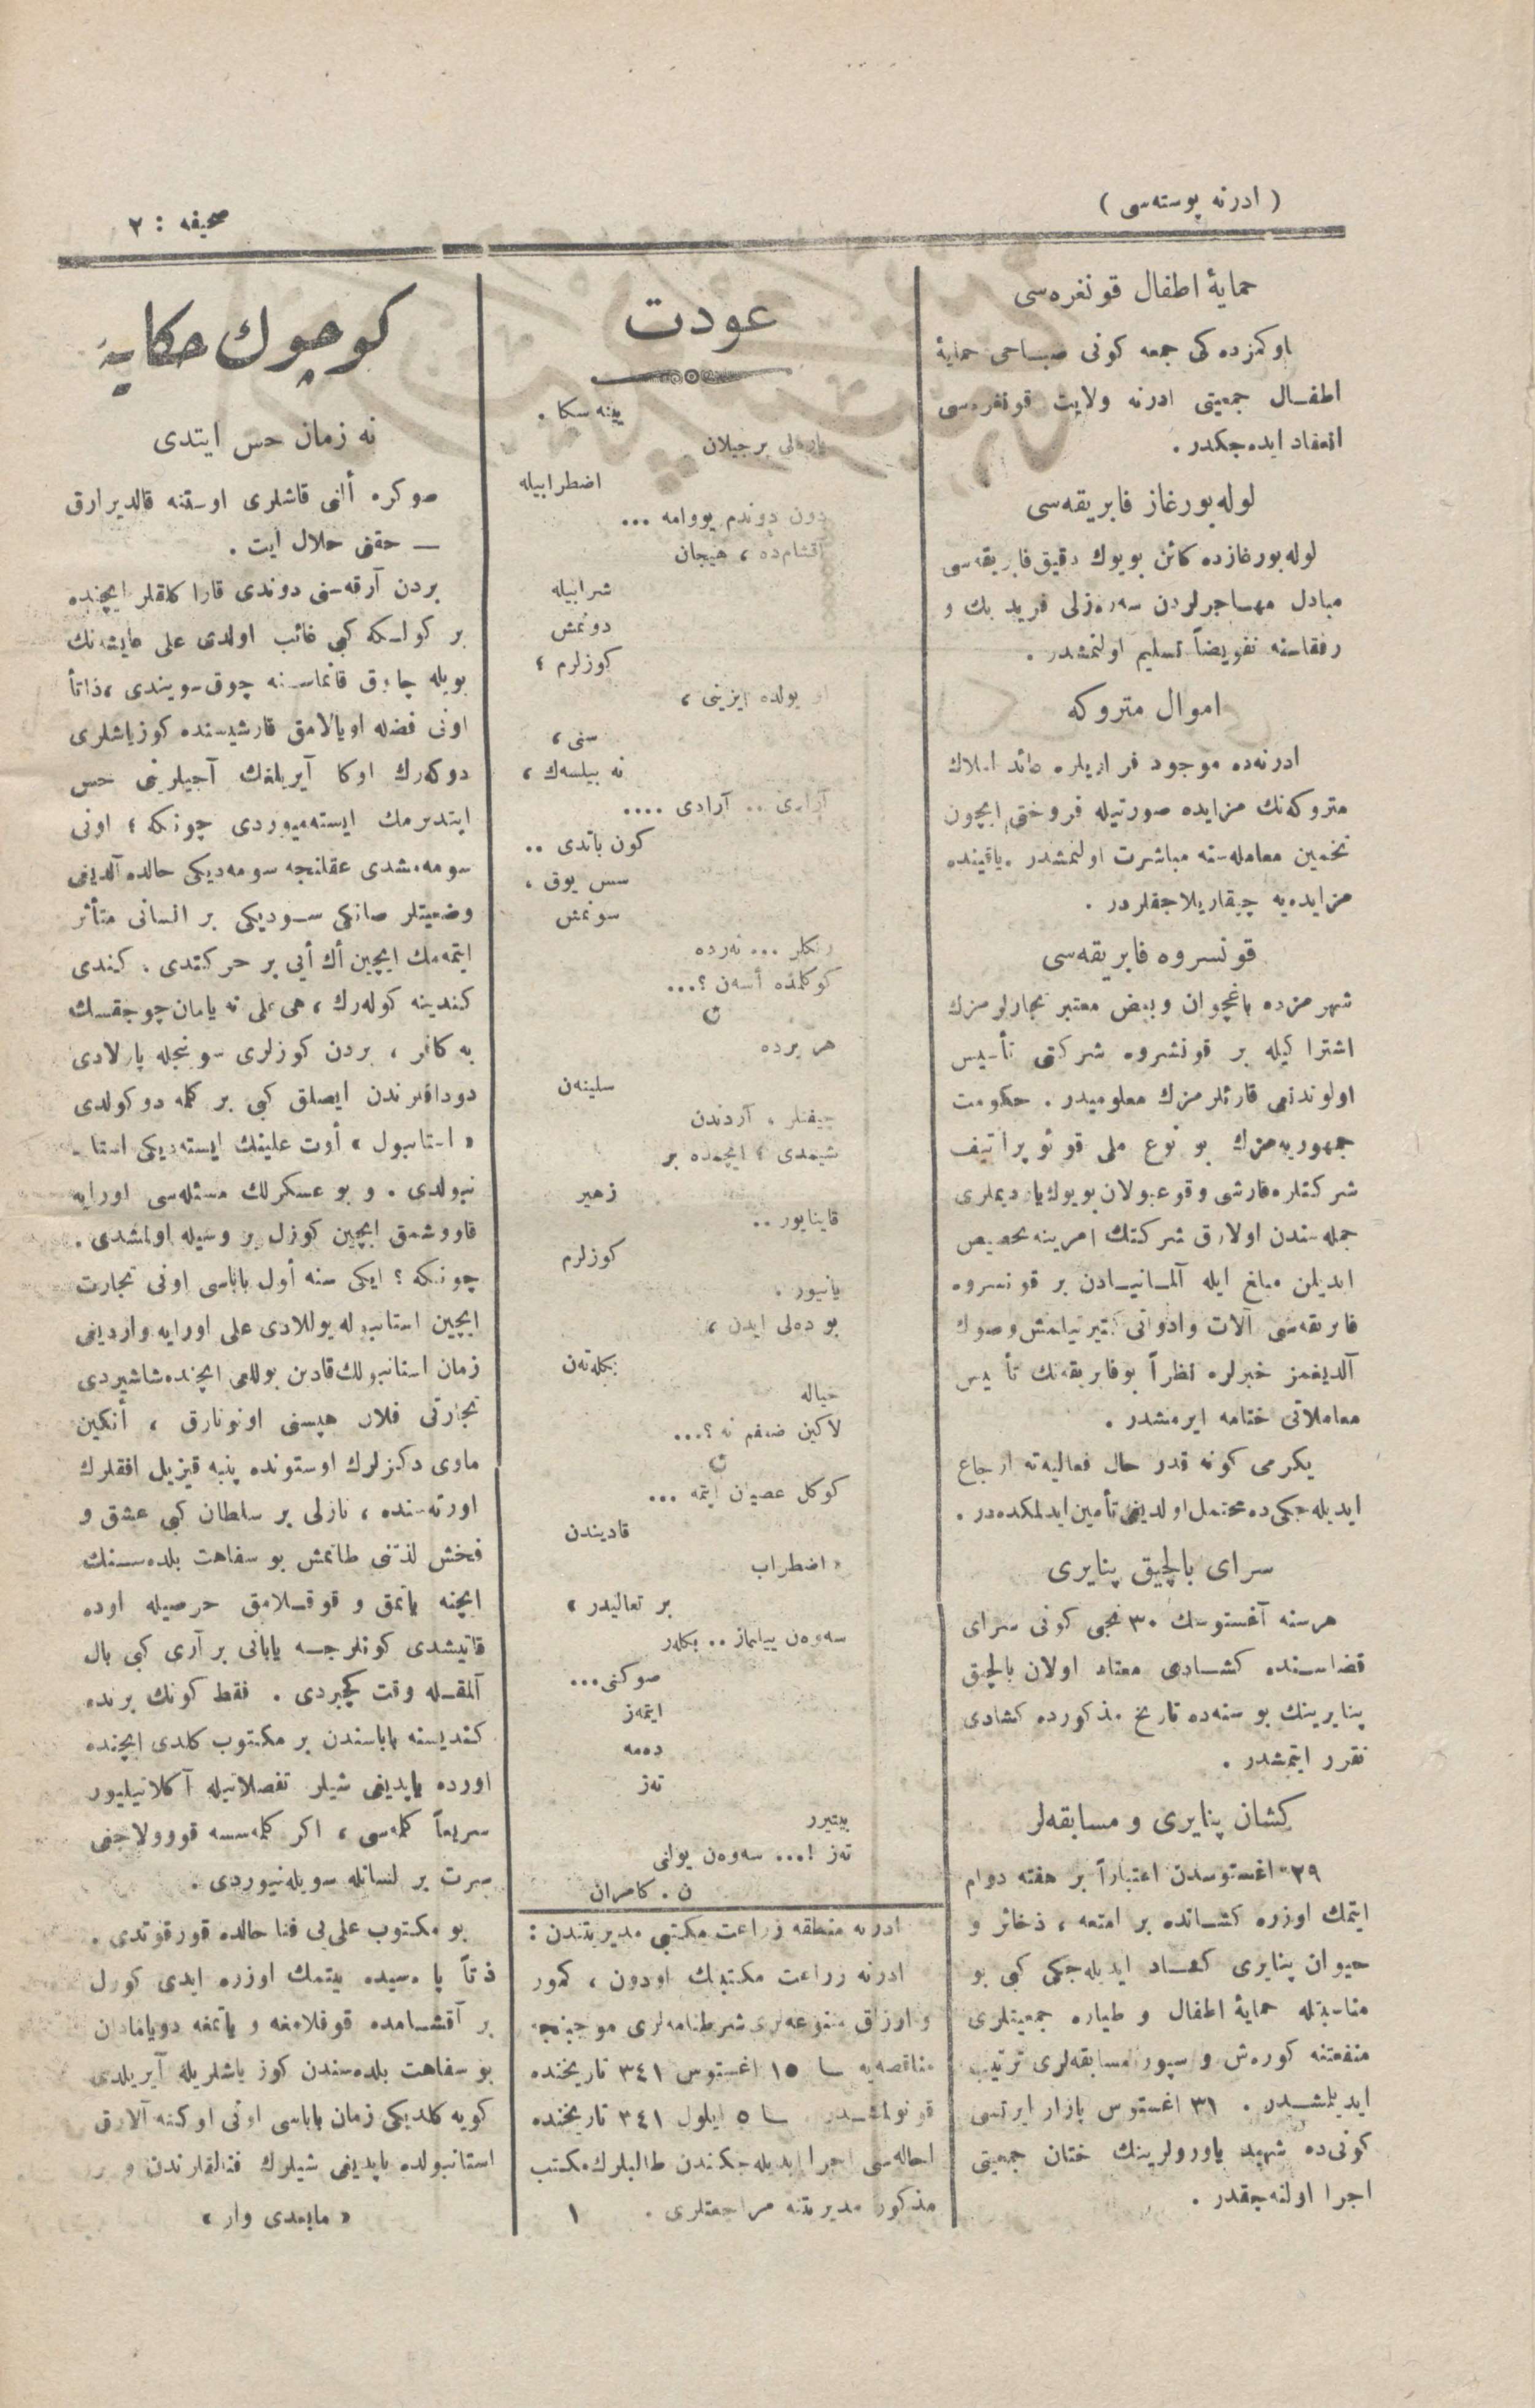 ( ادرنه پوسته‌سی )
صحیفه : ٢
حمایۀ اطفال قونغره‌سی
اوکمزده کی جمعه کونی صباحی حمایۀ
اطفال جمعیتی ادرنه ولایت قونغره‌سی
انعقاد ایده‌جکدر .
لوله‌بورغاز فابریقه‌سی
لوله‌بورغازده کائن بویوك دقیق فابریقه‌سی
مبادل مهاجرلردن سه‌ره‌زلی فرید بك و
رفقاسنه تفویضاً تسلیم اولنمشدر .
اموال متروکه
ادرنه‌ده موجود فراریلره عائد املاك
متروکه‌نك مزایده صورتیله فروختی ایچون
تخمین معامله‌سنه مباشرت اولنمشدر . یاقینده
مزایده‌یه چیقاریلاجقلردر .
قونسروه فابریقه‌سی
شهرمزده باغچوان و بعض معتبر تجارلرمزك
اشتراکیله بر قونسروه شرکتی تأسیس
اولوندیغی قارئلرمزك معلومیدر . حکومت
جمهوریه‌مزك بو نوع ملی قوئوپراتیف
شرکتلره قارشی وقوعبولان بویوك یاردیملری
جمله‌سندن اولارق شرکتك امرینه تخصیص
ایدیلن مبلغ ایله آلمانیادن بر قونسروه
فابریقه‌سی آلات و ادواتی کتیرتیلمش وصوك
آلدیغمز خبرلره نظراً بوفابریقه‌نك تأسیس
معاملاتی ختامه ایرمشدر .
یکرمی کونه قدر حال فعالیته ارجاع
ایدیله‌جکی‌ده محتمل اولدیغی تأمین ایدلمکده‌در .
سرای بالچیق پنایری
هرسنه آغستوسك ٣٠ نجی کونی سرای
قضاسنده کشادی معتاد اولان بالچیق
پنایرینك بو سنه‌ده تاریخ مذکورده کشادی
تقرر ایتمشدر .
کشان پنایری و مسابقه‌لر
٢٩ اغستوسدن اعتباراً بر هفته دوام
ایتمك اوزره کشانده بر امتعه ، ذخائر و
حیوان پنایری کشاد ایدیله‌جکی کبی بو
مناسبتله حمایۀ اطفال و طیاره جمعیتلری
منفعتنه کوره‌ش و سپور مسابقه‌لری ترتیب
ایدیلمشدر . ٣١ اغستوس پازار ایرتسی
کونی‌ده شهید یاورولرینك ختان جمعیتی
اجرا اولنه‌جقدر .
عودت
یینه سکا .
یاره‌لی برجیلان
اضطرابیله
دون دوندم یووامه ...
آقشام‌ده ، هیجان
شرابیله
دونمش
کوزلرم ؛
او یولده ایزینی ،
سنی ،
نه بیلسه‌ك ،
آرادی .. آرادی ....
کون باتدی ..
سس یوق .
سونمش
رنکلر ... نه‌رده
کوکلمده أسه‌ن ؟...
هر یرده
سلینه‌ن
چیفتلر . آردندن
شیمدی ؛ ایچمده بر
زهیر
قاینایور ..
کوزلرم
یانیور .
بو ده‌لی ایدن ،
بکله‌ته‌ن
خیاله
لاکین ضعفم نه ؟...
کوکل عصیان ایتمه ...
قادیندن
« اضطراب
بر تعالیدر »
سه‌وه‌ن ییلماز .. بکلر
صوکنی...
ایتمه‌ز
ده‌مه
ته‌ز
بیتیرر
ته‌ز !... سه‌وه‌ن یولنی
ن . کامران
ادرنه منطقه زراعت مکتبی مدیریتندن :
ادرنه زراعت مکتبنك اودون ، کمور
و ارزاق متنوعه‌لری شرطنامه‌لری موجبنجه
مناقصه‌یه ١٥ اغستوس ٣٤١ تاریخنده
قونولمشدر . ٥ ایلول ٣٤١ تاریخنده
احاله‌سی اجرا ایدیله‌جکندن طالبلرك مکتب
مذکور مدیریتنه مراجعتلری . ١
کوچوك حکایه
نه زمان حس ایتدی
صوکره ألنی قاشلری اوستنه قالدیرارق
— حقنی حلال ایت .
بردن آرقه‌سنی دوندی قارا کلقلر ایچنده
بر کولکه کبی غائب اولدی علی عایشه‌نك
بویله چابوق قانماسنه چوق سویندی ، ذاتاً
اونی فضله اویالامق قارشیسنده کوزیاشلری
دوکه‌رك اوکا آیریلغك آجیلرینی حس
ایتدیرمك ایسته‌میوردی چونکه ؛ اونی
سومه‌مشدی عقلنجه سومه‌دیکی حالده آلدیغی
وضعیتلر صانکی سودیکی بر انسانی متأثر
ایتمه‌مك ایچین أك أیی بر حرکتدی . کندی
کندینه کوله‌رك ، هی علی نه یامان چوجقسك
به کافر ، بردن کوزلری سونجله پارلادی
دوداقلرندن ایصلق کبی بر کلمه دوکولدی
« استانبول » أوت علینك ایسته‌دیکی استا -
نبولدی . و بو عسکرلك مسئله‌سی اورایه
قاووشمق ایچین کوزل بر وسیله اولمشدی .
چونکه ؟ ایکی سنه أول باباسی اونی تجارت
ایچین استانبوله یوللادی علی اورایه واردیغی
زمان استانبولك قادین بوللغی ایچنده شاشیردی
تجارتی فلان هپسنی اونوتارق ، أنکین
ماوی دکزلرك اوستونده پنبه قیزیل افقلرك
اورته‌سنده ، نازلی بر سلطان کبی عشق و
فحش لذتنی طاتمش بو سفاهت بلده‌سنك
ایچنه یاتمق و قوقلامق حرصیله اوده
قاتیشدی کونلرجه یابانی بر آری کبی بال
آلمقله وقت کچیردی . فقط کونك برنده
کندیسنه باباسندن بر مکتوب کلدی ایچنده
اورده یاپدیغی شیلر تفصلاتیله آکلاتیلیور
سریعاً کلمه‌سی ، اکر کلمه‌سسه قوولاجغی
سرت بر لسانله سویله‌نیوردی .
بو مکتوب علی‌یی فنا حالده قورقوتدی .
ذتاً پاره‌سیده بیتمك اوزره ایدی کورل
بر آقشامده قوقلامغه و یاتمغه دویامادان
بو سفاهت بلده‌سندن کوز یاشلریله آیریلدی
کویه کلدیکی زمان باباسی اونی اوکنه آلارق
استانبولده یاپدیغی شیلرك فنالقلرندن و بر
« مابعدی وار »